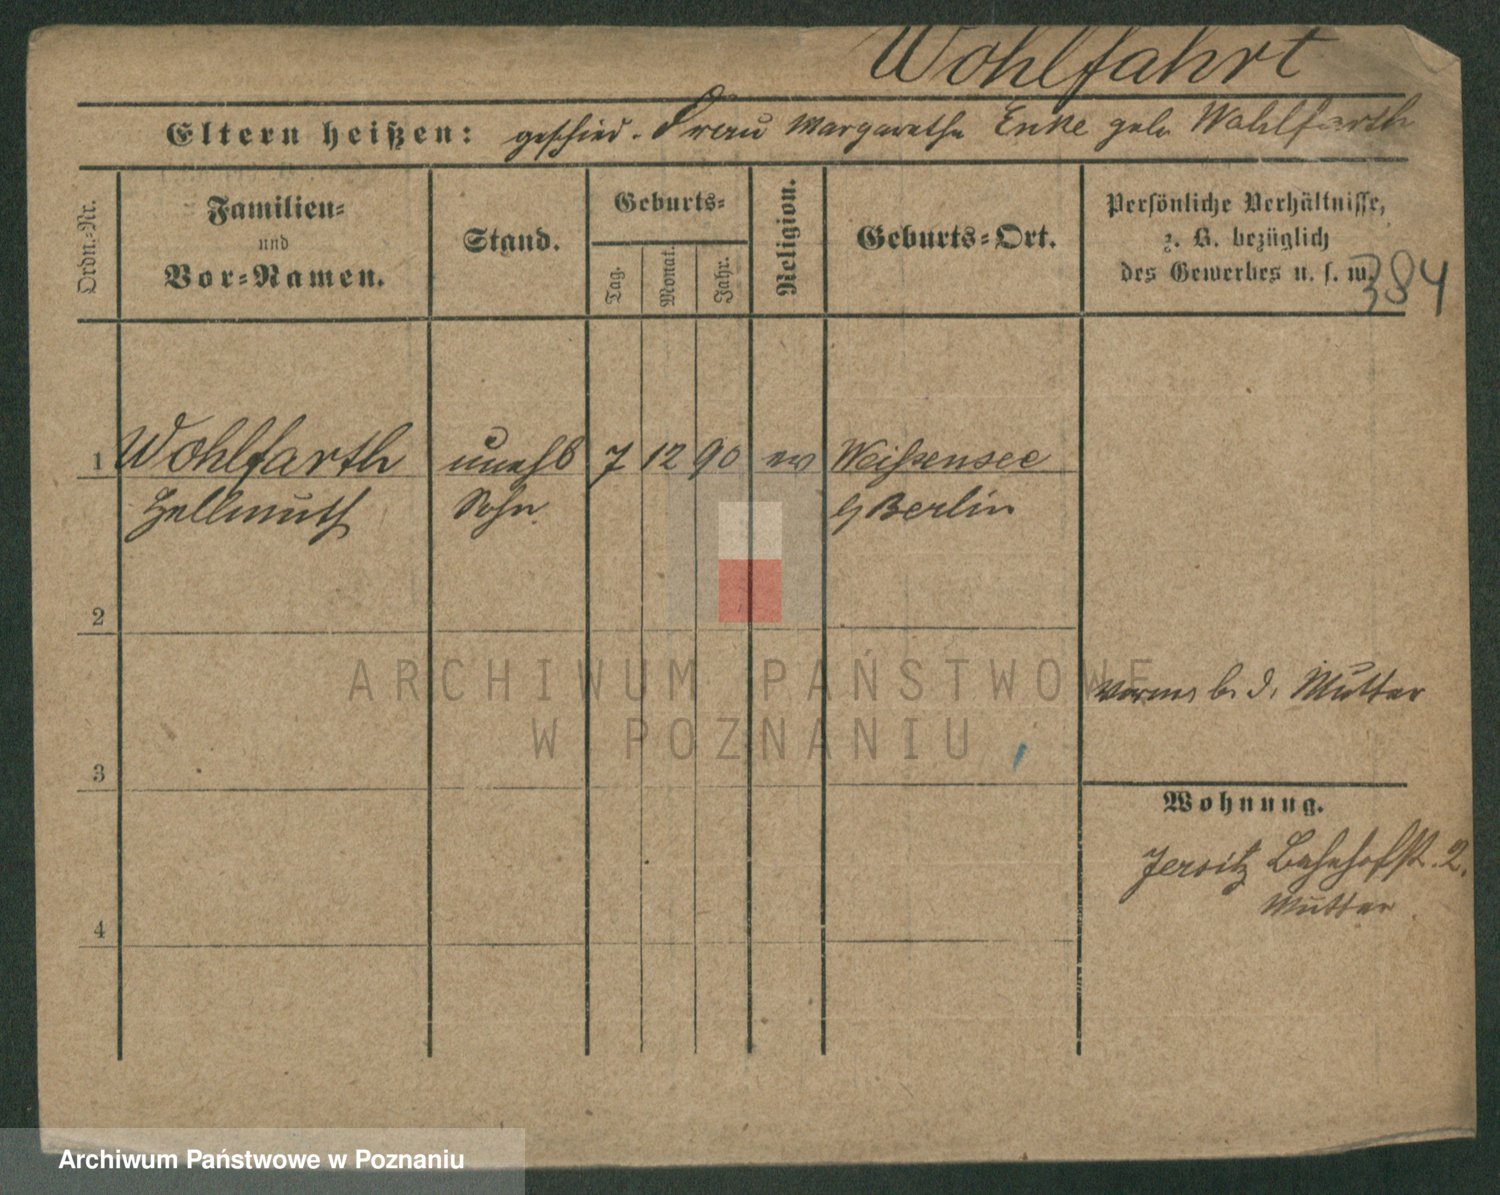 Wohlfahrt
Eltern heißen: geschied. Frau Margarethe Enke geb. Wohlfarth
Ordn.-Nr.
Familien-
und
Vor-Namen.
Stand.
Geburts-
Tag.
Monat.
Jahr.
Religion.
Geburts-Ort.
Persönliche Verhältnisse,
z. B. bezüglich
des Gewerbes u. s. w.
384
1 Wohlfarth unehl 7 12 90 ev Weißensee
Hellmuth Sohn b/Berlin
2
3
4
b. d. Mutter
Wohnung.
Jersitz Bahnhofstr. 2.
Mutter
ARCHIWUM PAŃSTWOWE
W POZNANIU
Archiwum Państwowe w Poznaniu